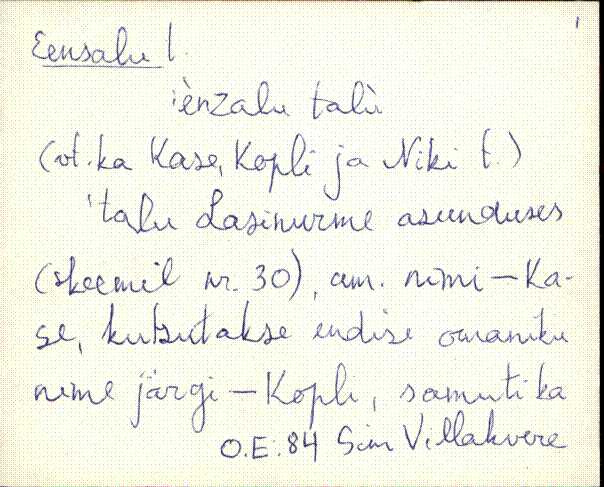 1
Eensalu t.
ˈènzalu talù
(vt. ka Kase, Kopli ja Niki t.)
ˈtalu Lasinurme asunduses
(skeemil nr. 30), am. nimi – Ka-
se, kutsutakse endise omaniku
nime järgi – Kopli, samuti ka
O.E. 84 Sim Villakvere